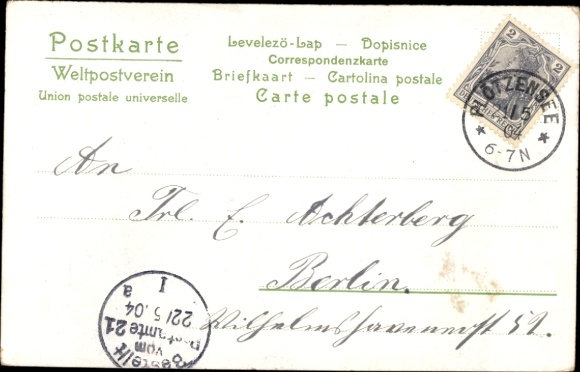 Postkarte
Weltpostverein
Union postale universelle
Levelezö-Lap — Dopisnice
Correspondenzkarte
Briefkaart — Cartolina postale
Carte postale
2 2
PLÖTZENSEE
04
6-7N
An
Frl. E. Achterberg
Berlin.
Wilhelmshavenerst
Bestellt
vom
Postamte 21
22/5.04
I
a